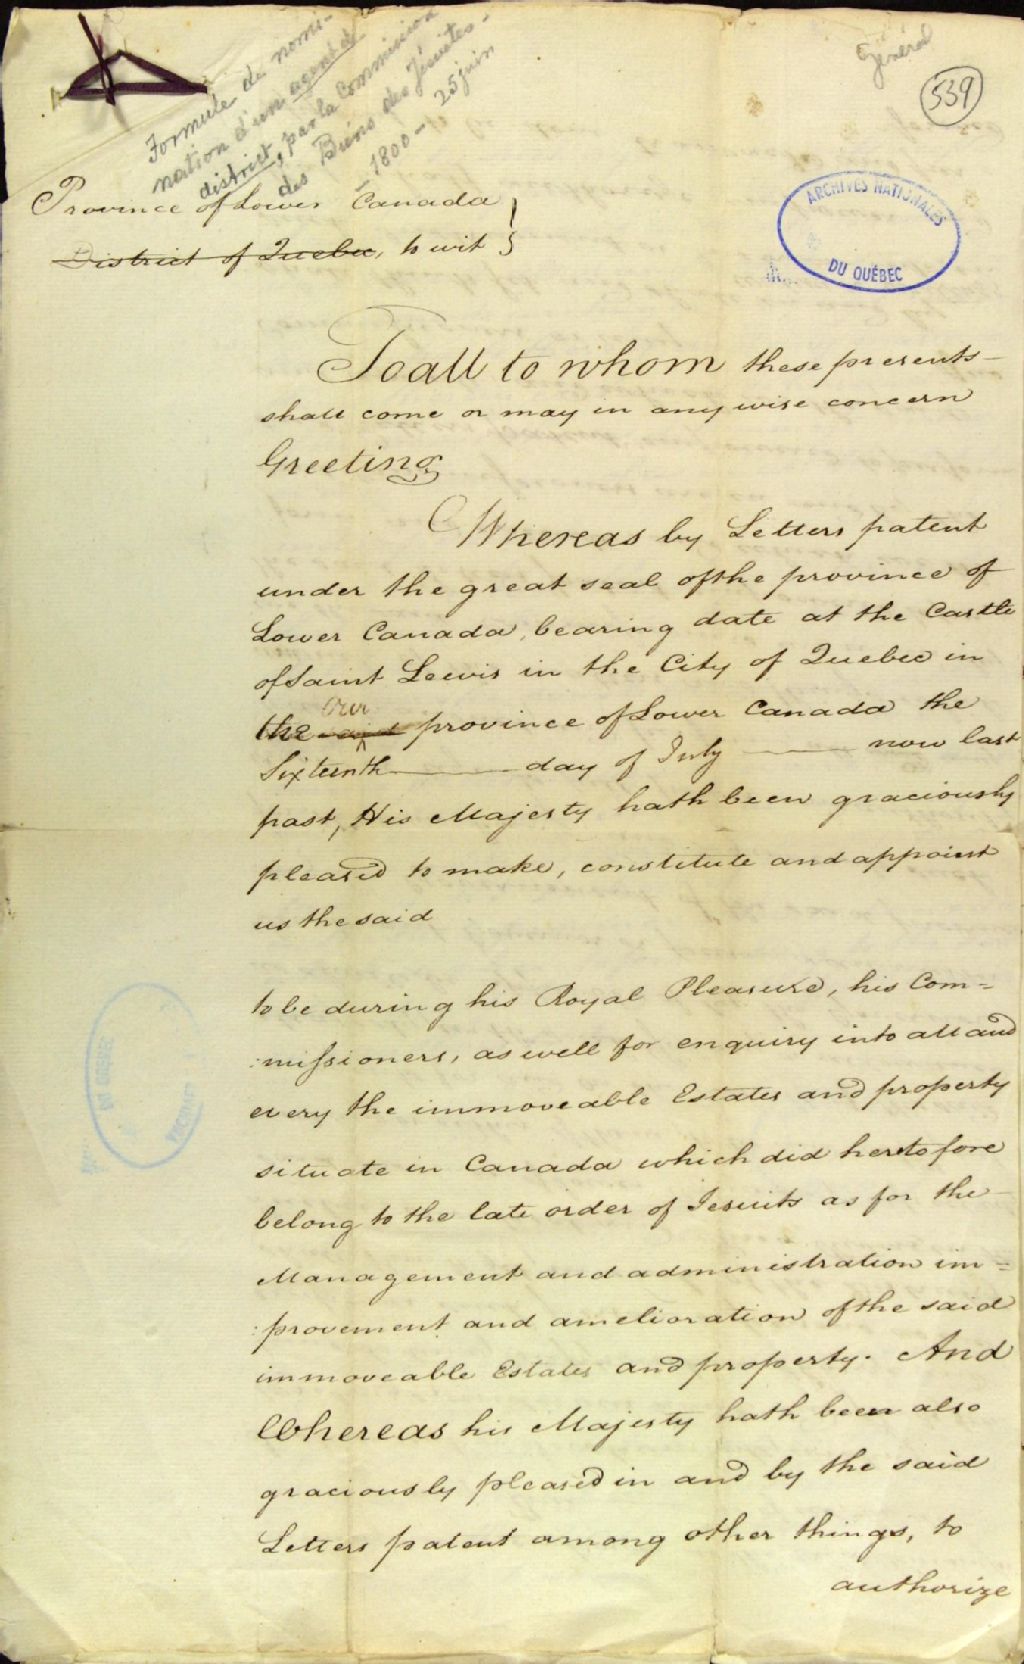 Général
539
Formule de nomi-
nation d'un agent de
district, par la Commission
des Biens des Jésuites -
- 1800 - 25 juin
Province of Lower Canada }
District of Quebec, to wit }
ARCHIVES NATIONALES
DU QUÉBEC
To all to whom these presents
shall come or may in any wise concern
Greeting
Whereas by Letters patent
under the great seal of the province of
Lower Canada, bearing date at the Castle
of Saint Lewis in the City of Quebec in
Our
the said province of Lower Canada the
Sixteenth day of July now last
past, His Majesty hath been graciously
pleased to make, constitute and appoint
us the said
to be during his Royal Pleasure, his Com=
:missioners, as well for enquiry into all and
every the immoveable Estates and property
situate in Canada which did heretofore
belong to the late order of Jesuits as for the
Management and administration im=
:provement and amelioration of the said
immoveable Estates and property. And
Whereas his Majesty hath been also
graciously pleased in and by the said
Letters patent among other things, to
authorize